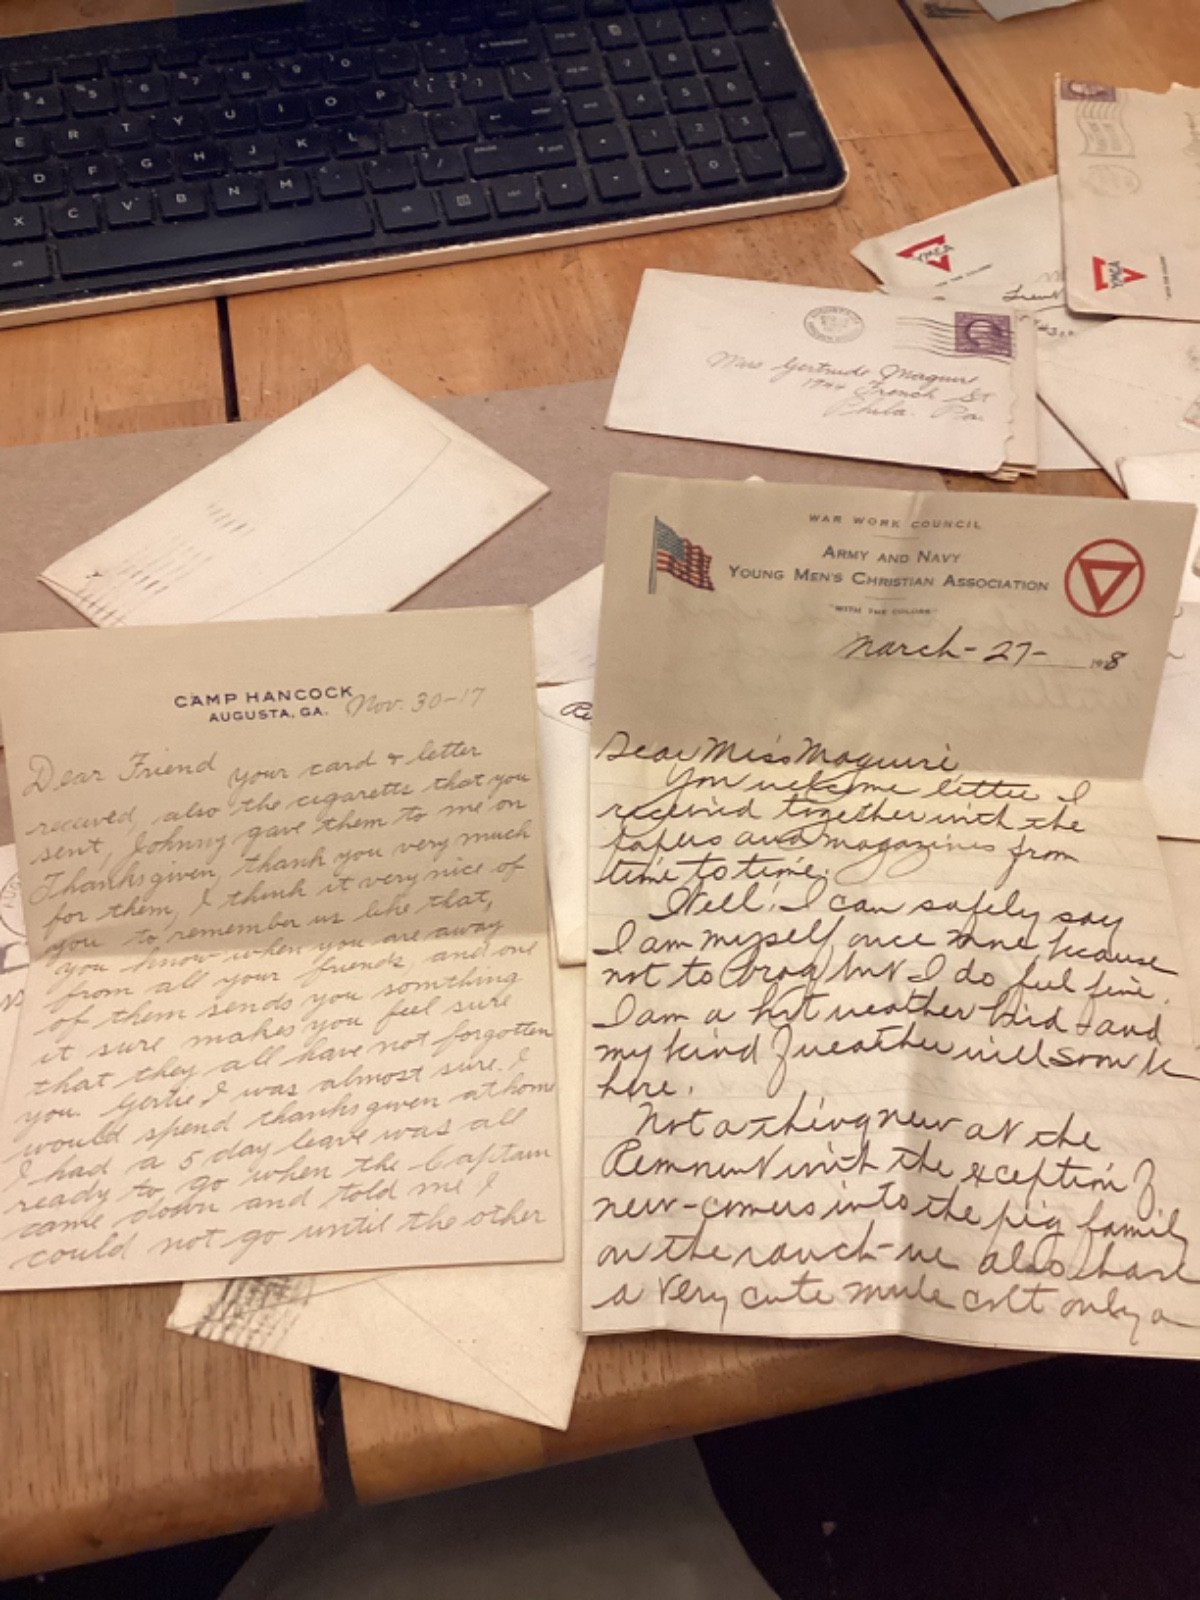 YMCA
YMCA
Miss Gertrude Maguire
1944 French St
Phila. Pa.
CAMP HANCOCK
AUGUSTA, GA.
Nov. 30-17
Dear Friend your card & letter
received, also the cigaretts that you
sent, Johnny gave them to me on
Thanksgiven, thank you very much
for them, I think it very nice of
you to remember us like that,
you know when you are away
from all your friends, and one
of them sends you somthing
it sure makes you feel sure
that they all have not forgotten
you. Gertie I was almost sure I
would spend thanksgiven at home
I had a 5 day leave was all
ready to go when the Captain
came down and told me I
could not go until the other
WAR WORK COUNCIL
ARMY AND NAVY
YOUNG MEN'S CHRISTIAN ASSOCIATION
"WITH THE COLORS"
March-27- 1918
Dear Miss Maguire,
You welcome letter I
received together with the
papers and magazines from
time to time.
Well! I can safely say
I am myself once more because
not to brag but I do feel fine.
I am a hot weather bird and
my kind of weather will soon be
here.
Not a thing new at the
with the exception of
new-comers into the pig family
on the ranch-we also have
a very cute mule colt only a